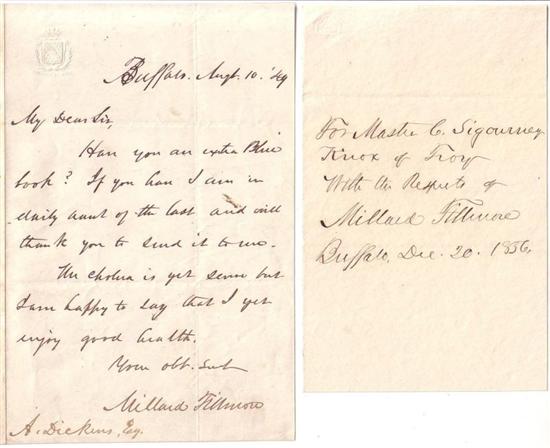 Buffalo. Augt. 10. '49
My Dear Sir,
Have you an extra Blue
book? If you have I am in
daily want of the last and will
thank you to send it to me.
The cholera is yet severe but
I am happy to say that I yet
enjoy good health.
Your obt. Svt
Millard Fillmore
A. Dickins, Esq.
For Master C. Sigourney
Knox of Troy
With the Respects of
Millard Fillmore
Buffalo, Dec. 20. 1856.